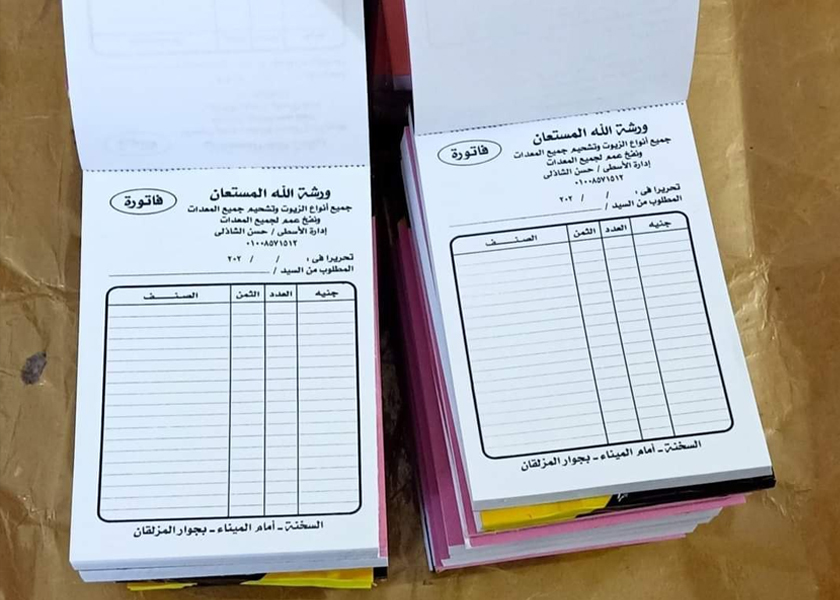 ورشة الله المستعان
فاتورة
جميع أنواع الزيوت وتشحيم جميع المعدات
ونفخ عمم لجميع المعدات
إدارة الأسطى / حسن الشاذلى
٠١٠٠٨٥٧١٥١٢
تحريرا فى : / / ٢٠٢
المطلوب من السيد /
جنيه العدد الثمن الصنف
السخنة - أمام الميناء - بجوار المزلقان
ورشة الله المستعان
فاتورة
جميع أنواع الزيوت وتشحيم جميع المعدات
ونفخ عمم لجميع المعدات
إدارة الأسطى / حسن الشاذلى
٠١٠٠٨٥٧١٥١٢
تحريرا فى : / / ٢٠٢
المطلوب من السيد /
جنيه العدد الثمن الصنف
السخنة - أمام الميناء - بجوار المزلقان